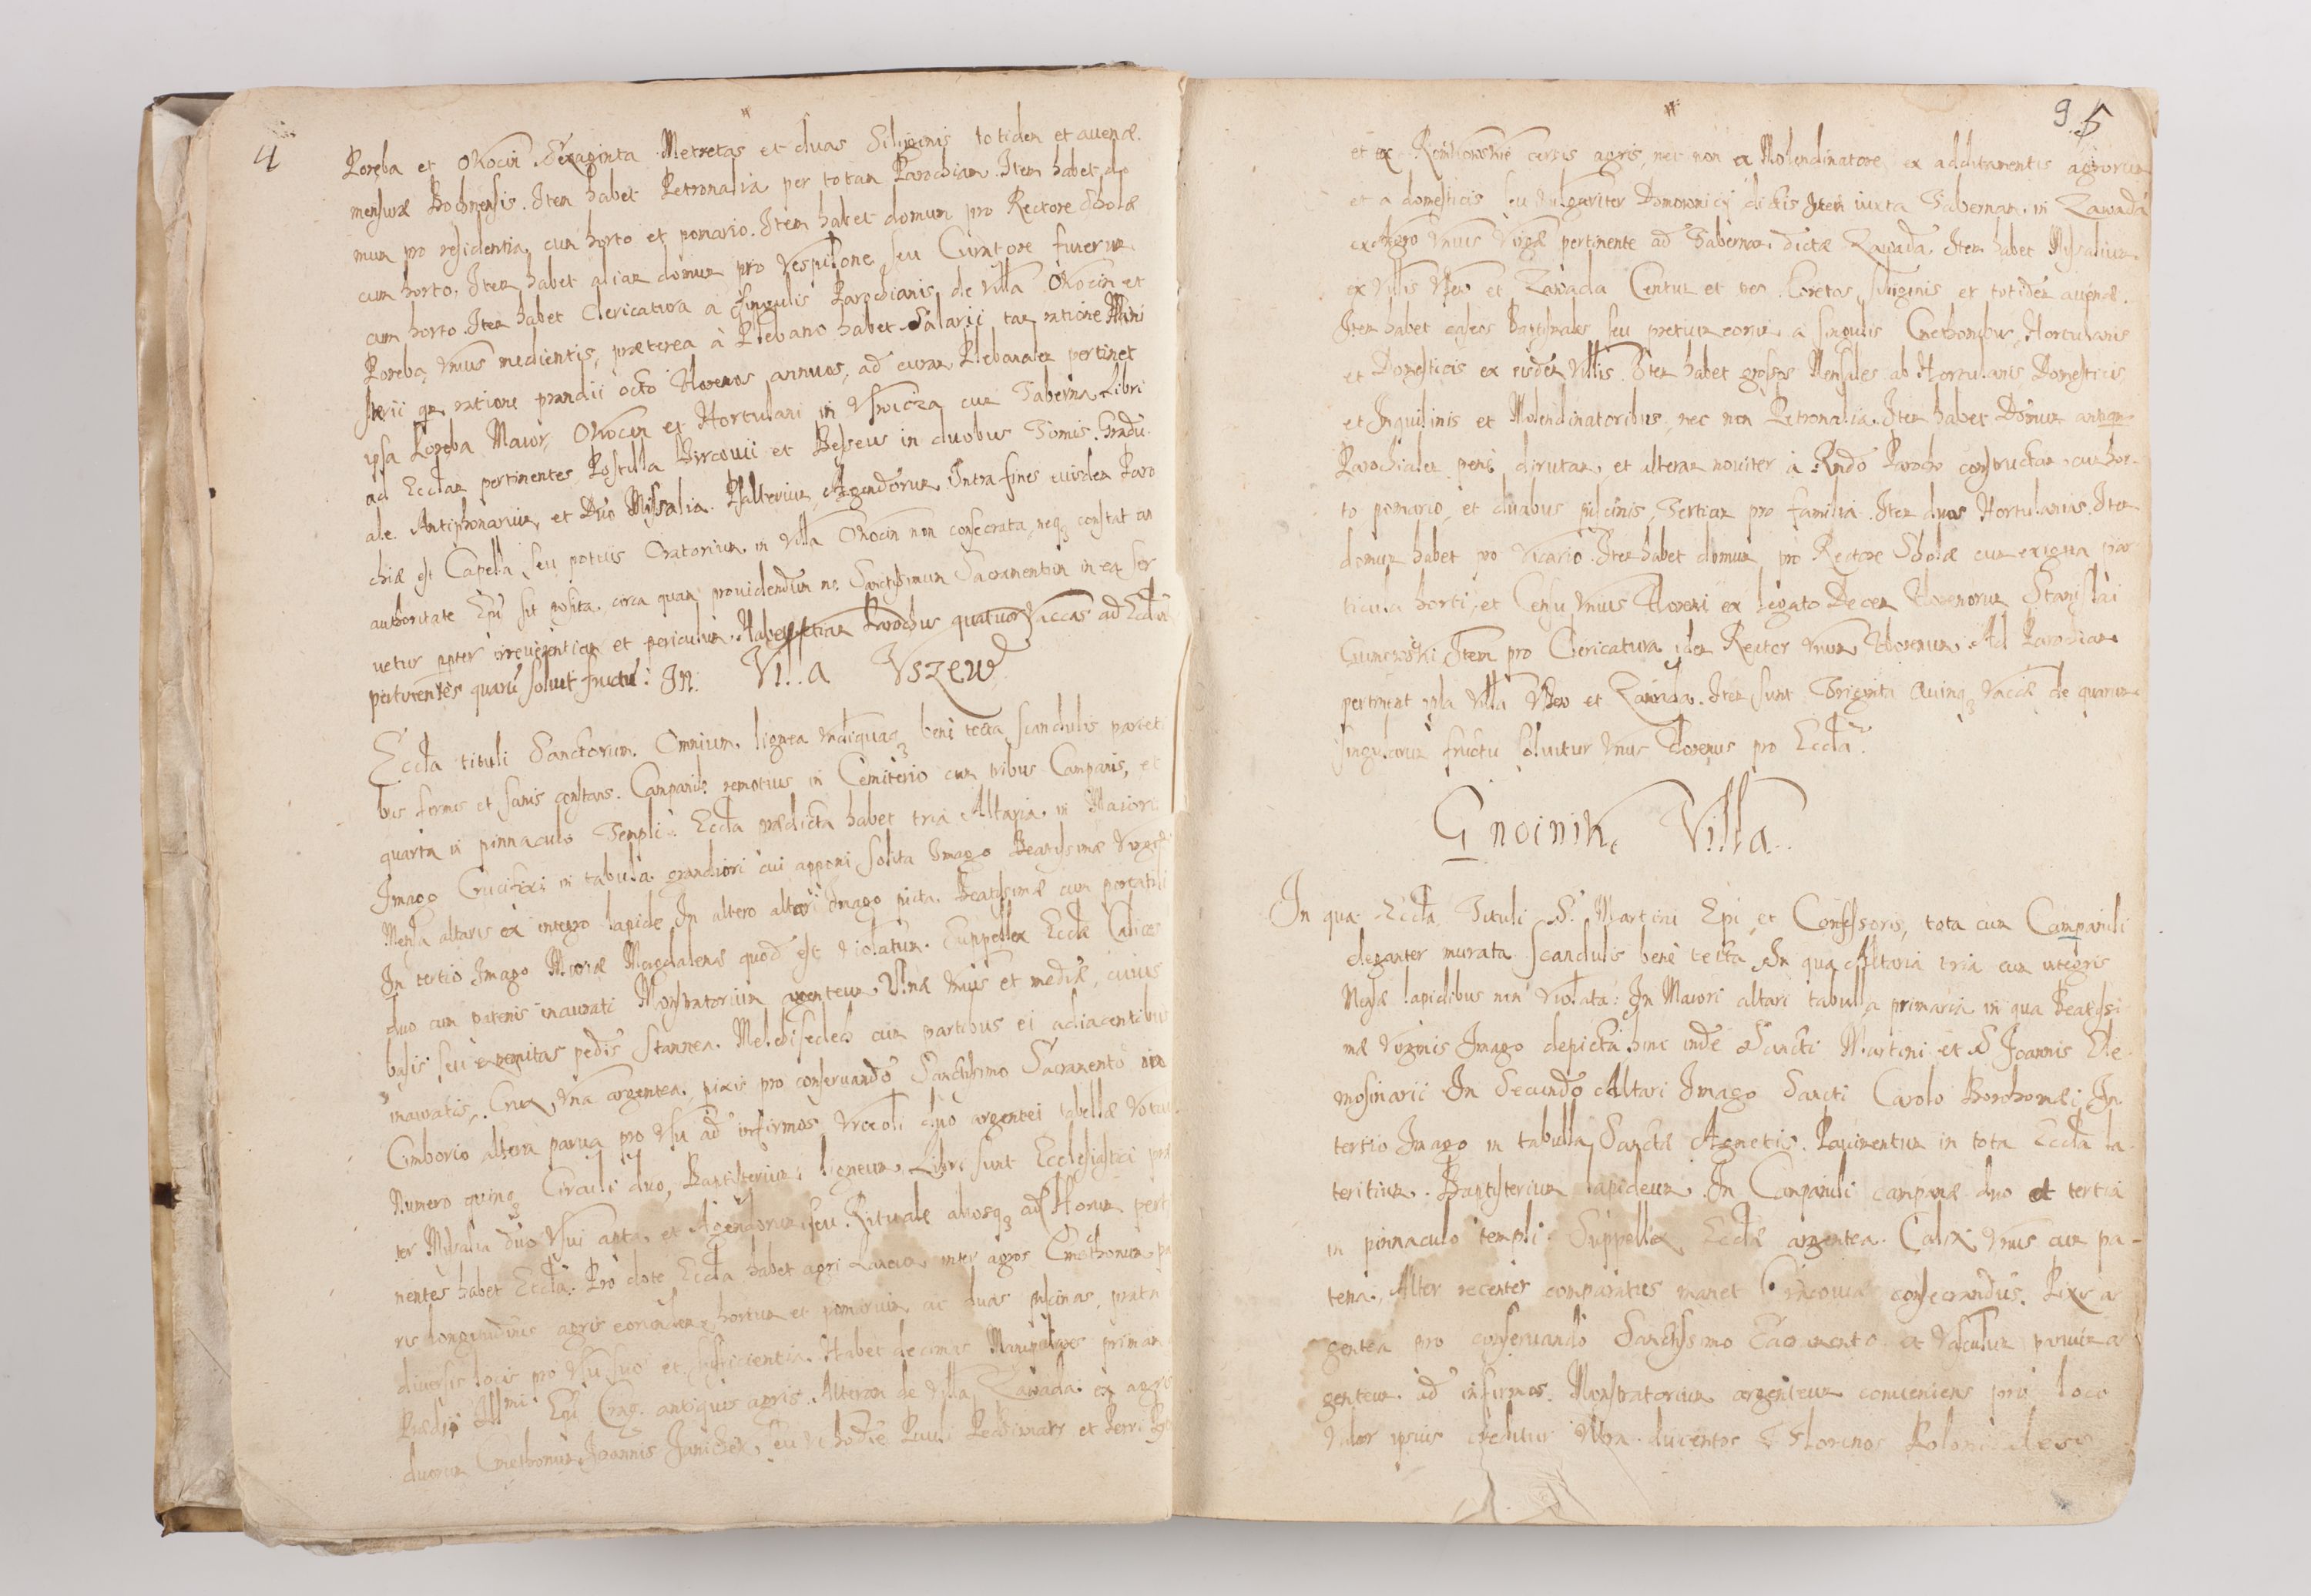 4
Poręba et Okocin. Sexaginta Metretas et duas Siliginis totidem et auenæ.
mensuræ Bochnensis. Item habet Petronalia per totam Parochiam. Item habet do
mum pro residentia, cum horto et pomario. Item habet domum pro Rectore Scholæ
cum horto. Item habet aliam domum pro Vespilone seu Curatore funerum
cum horto. Item habet Clericatura a singulis Parochianis de Villa Okocin et
Poręba, vnius medientis, præterea à Plebano habet Salarii tam ratione Mini
sterii qm ratione prandii octo Florenos annuos, ad curam Plebanalem pertinet
ipsa Poręba Maior, Okocin et Hortulani in Vswicza cum Taberna. Libri
ad Ecclam pertinentes Postilla Bircouii et Besseus in duobus Tomis. Gradu
ale. Antiphonarium, et Duo Missalia. Psalterium, Agendorum. Intra fines eiusdem Paro
chiæ est Capella seu potius Oratorium in Villa Okocin non consecrata, neq3 constat an
authoritate Epi sit posita, circa quam prouidendum ne Sanctissimum Sacramentum in ea ser
uetur propter irreuerentiam et periculum. Habet etiam Parochus quatuor Vaccas ad Ecclam
pertinentes quarum soluit fructu: In. Villa Vszew
Eccla tituli Sanctorum Omnium, lignea vndiquaq3 benè tecta scandulis pariet
bus firmis et sanis constans. Campanile remotius in Cemiterio cum tribus Campanis, et
quarta in pinnaculo Templi. Eccla prædicta habet tria Altaria, in Maiori
Imago Crucifixi in tabula grandiori cui apponi solita Imago Beatissimæ Virginis
Mensa altaris ex integro lapide. In altero altari Imago picta Beatissimæ cum portatili
In tertio Imago Mariæ Magdalenæ quod est violatum. Suppellex Ecclæ Calices
duo cum patenis inaurati Monstratorium argenteum Vlnæ vnius et mediæ, cuius
basis seu extremitas pedis stannea. Melchisedech cum partibus ei adiacentibus
inauratis, Crux vna argentea, pixis pro conseruando Sanctissimo Sacramento in
Cimborio altera parua pro vsu ad infirmos Vrceoli duo argentei tabellæ votiu
Numero quinq3 Circuli duo, Baptisterium ligneum, Libri sunt Ecclesiastici præ
ter Missalia duo vsui apta, et Agendorum seu Rituale aliosq3 ad Horum perti
nentes habet Eccla. Pro dote Eccla habet agri Laneum inter agros Cmethonum pa
ris longitudinis agris eorundem, hortum et pomarium, ac duas piscinas, prata
diuersis locis pro vsu suo et sufficientia. Habet decimas Manipulares primam
Prædii Illmi Epi Crac. antiquis agris. Alteram de Villa Zawada ex agris
duorum Cmethonum Joannis Janiczek, seu vt hodie Pauli et Petri
9. 5
et ex certis agris, nec non ex Molendinatore ex additamentis agrorum
et a domesticis seu vulgariter Domownicy dictis Item iuxta Tabernam in Zawada
ex Agro vnius Virgæ pertinente ad Tabernam dictæ Zawada. Item habet Missalium
ex Villis Vszew et Zawada Centum et tres Coretos siliginis et totidem auenæ.
Item habet caseos Paschales seu pretium eorum a singulis Cmethonibus, Hortulanis
et Domesticis ex eisdem Villis. Item habet grossos Mensales ab Hortulanis, Domesticis
et Inquilinis et Molendinatoribus, nec non Petronalia. Item habet Domum antiqua
Parochialem penè dirutam, et alteram nouiter à Rndo Parocho constructam, cum hor-
to pomario, et duabus piscinis, Tertiam pro familia. Item duas Hortulanias. Item
domum habet pro Vicario. Item habet domum pro Rectore Scholæ cum exigua par
ticula horti, et Censu vnius Floreni ex legato Decem Florenorum Stanislai
Item pro Clericatura idem Rector vnum Florenum. Ad Parochiam
pertinent ipsa Villa Vszew et Zawada. Item sunt Triginti Quinq3 vaccæ de quarum
singularum fructu soluitur vnus Florenus pro Eccla.
Gnoinik Villa.
In qua Eccla Tituli S. Martini Epi et Confessoris, tota cum Campanili
eleganter murata scandulis benè tecta. In qua Altaria tria cum integris
Mensæ lapidibus non violata: In Maiori altari tabulla primaria in qua Beatissi
mæ Virginis Imago depicta hinc inde Sancti Martini et S Joannis Ele-
mosinarii In Secundo Altari Imago Sancti Carolo Borrhomæi, In
tertio Imago in tabulla Sanctæ Agnetis. Pauimentum in tota Eccla la-
teritium. Baptisterium lapideum. In Campanili campanæ duo et tertia
in pinnaculo templi. Suppellex Ecclæ argentea. Calix vnus cum pa-
tena, Alter recenter comparatus manet Cracouiæ consecrandus. Pixis ar
gentea pro conseruando Sanctissimo Sacramento et vasculum paruum ar
genteum ad infirmos. Monstratorium argenteum conueniens pro loco
Valor ipsius creditur vltra ducentos Florenos Polonicales